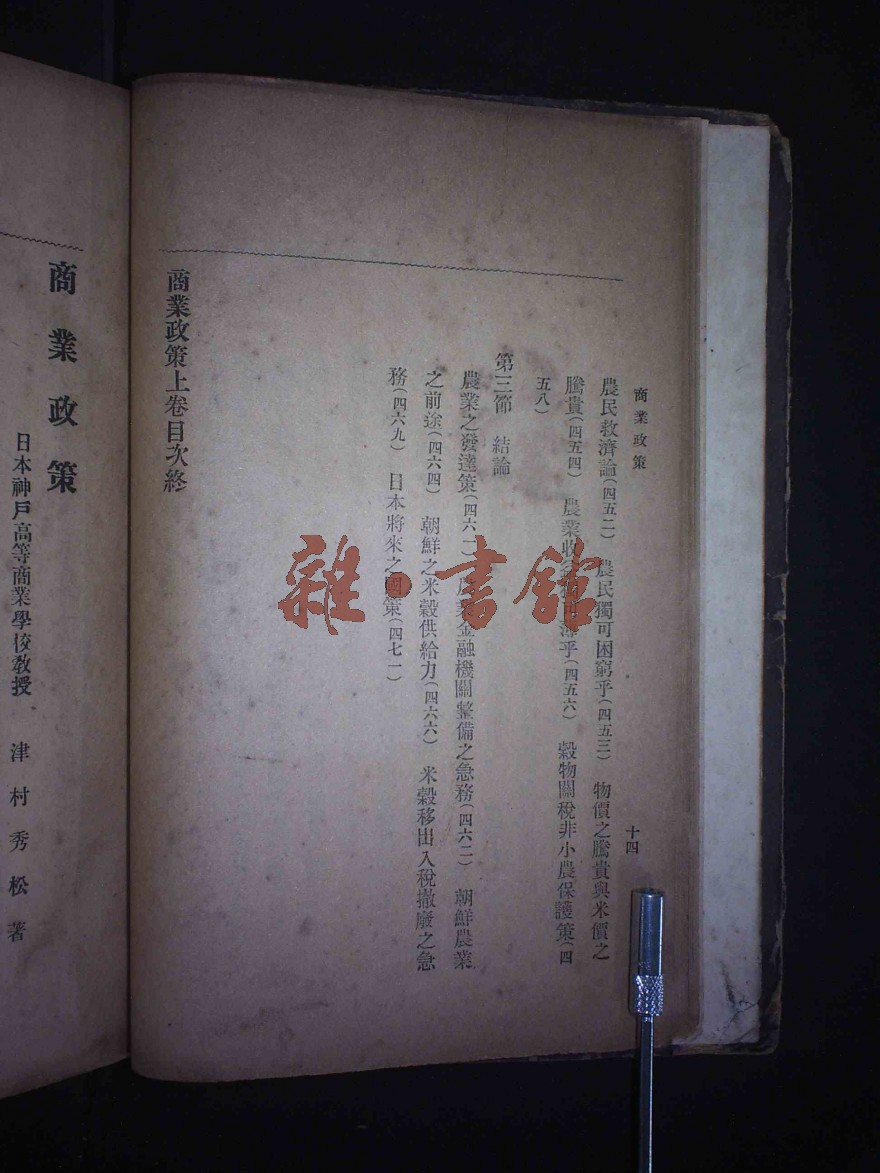 商業政策
十四
農民救濟論(四五二) 農民獨可困窮乎(四五三) 物價之騰貴與米價之
騰貴(四五四) 農業收 薄乎(四五六) 穀物關稅非小農保護策(四
五八)
第三節 結論
農業之發達策(四六一) 農業金融機關整備之急務(四六二) 朝鮮農業
之前途(四六四) 朝鮮之米穀供給力(四六六) 米穀移出入稅撤廢之急
務(四六九) 日本將來之國策(四七一)
商業政策上卷目次終
商業政策
日本神戶高等商業學校教授 津村秀松著
雜·書館